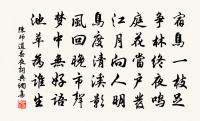 宿鳥一枝足
爭林終夜鳴
庭花當戶
江月向人明
度清溪影
風回晚市聲
夢中無好語
池草為誰生
陳師道春夜詞典網書